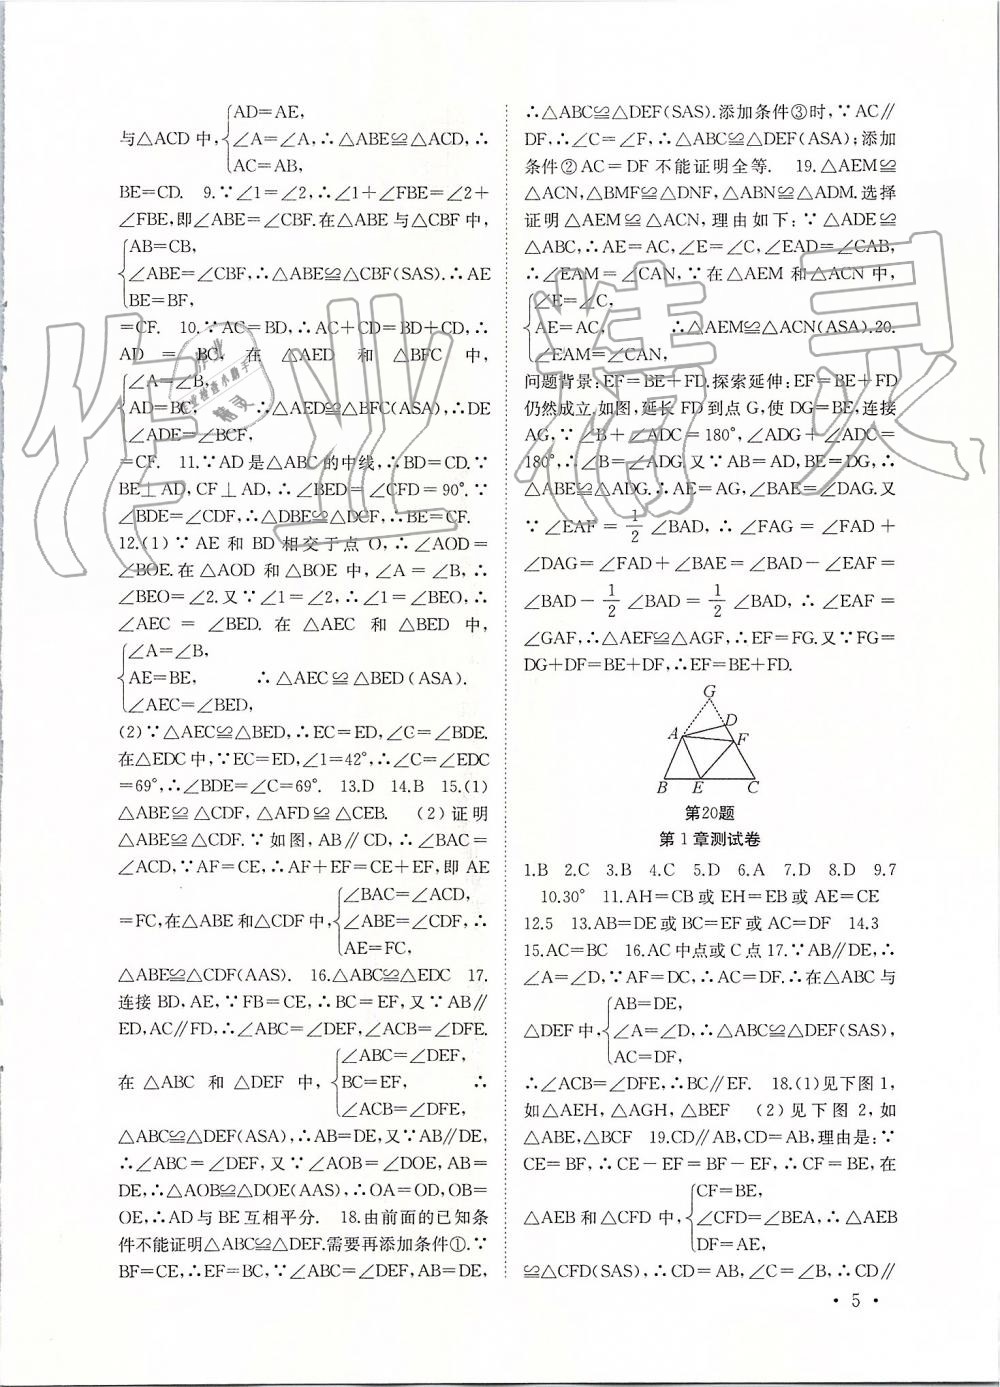 AD=AE,
与△ACD中,∠A=∠A,∴△ABE≌△ACD,∴
AC=AB,
BE=CD. 9.∵∠1=∠2,∴∠1+∠FBE=∠2+
∠FBE,即∠ABE=∠CBF.在△ABE与△CBF中,
AB=CB,
∠ABE=∠CBF,∴△ABE≌△CBF(SAS).∴AE
BE=BF,
=CF. 10.∵AC=BD,∴AC+CD=BD+CD,∴
AD=BC,在△AED和△BFC中,
∠A=∠B,
AD=BC, ∴△AED≌△BFC(ASA),∴DE
∠ADE=∠BCF,
=CF. 11.∵AD是△ABC的中线,∴BD=CD.∵
BE⊥AD,CF⊥AD,∴∠BED=∠CFD=90°.∵
∠BDE=∠CDF,∴△DBE≌△DCF,∴BE=CF.
12.(1)∵AE和BD相交于点O,∴∠AOD=
∠BOE.在△AOD和△BOE中,∠A=∠B,∴
∠BEO=∠2.又∵∠1=∠2,∴∠1=∠BEO,∴
∠AEC=∠BED.在△AEC和△BED中,
∠A=∠B,
AE=BE, ∴△AEC≌△BED(ASA).
∠AEC=∠BED,
(2)∵△AEC≌△BED,∴EC=ED,∠C=∠BDE.
在△EDC中,∵EC=ED,∠1=42°,∴∠C=∠EDC
=69°,∴∠BDE=∠C=69°. 13.D 14.B 15.(1)
△ABE≌△CDF,△AFD≌△CEB. (2)证明
△ABE≌△CDF.∵如图,AB∥CD,∴∠BAC=
∠ACD,∵AF=CE,∴AF+EF=CE+EF,即AE
∠BAC=∠ACD,
=FC,在△ABE和△CDF中,∠ABE=∠CDF,∴
AE=FC,
△ABE≌△CDF(AAS). 16.△ABC≌△EDC 17.
连接BD,AE,∵FB=CE,∴BC=EF,又∵AB∥
ED,AC∥FD,∴∠ABC=∠DEF,∠ACB=∠DFE.
∠ABC=∠DEF,
在△ABC和△DEF中,BC=EF, ∴
∠ACB=∠DFE,
△ABC≌△DEF(ASA),∴AB=DE,又∵AB∥DE,
∴∠ABC=∠DEF,又∵∠AOB=∠DOE,AB=
DE,∴△AOB≌△DOE(AAS),∴OA=OD,OB=
OE,∴AD与BE互相平分. 18.由前面的已知条
件不能证明△ABC≌△DEF.需要再添加条件①.∵
BF=CE,∴EF=BC,∵∠ABC=∠DEF,AB=DE,
∴△ABC≌△DEF(SAS).添加条件③时,∵AC∥
DF,∴∠C=∠F,∴△ABC≌△DEF(ASA);添加
条件②AC=DF不能证明全等. 19.△AEM≌
△ACN,△BMF≌△DNF,△ABN≌△ADM.选择
证明△AEM≌△ACN,理由如下:∵△ADE≌
△ABC,∴AE=AC,∠E=∠C,∠EAD=∠CAB,
∴∠EAM=∠CAN,∵在△AEM和△ACN中,
∠E=∠C,
AE=AC, ∴△AEM≌△ACN(ASA).20.
∠EAM=∠CAN,
问题背景:EF=BE+FD.探索延伸:EF=BE+FD
仍然成立.如图,延长FD到点G,使DG=BE,连接
AG,∵∠B+∠ADC=180°,∠ADG+∠ADC=
180°,∴∠B=∠ADG.又∵AB=AD,BE=DG,∴
△ABE≌△ADG.∴AE=AG,∠BAE=∠DAG.又
∵∠EAF=1/2∠BAD,∴∠FAG=∠FAD+
∠DAG=∠FAD+∠BAE=∠BAD-∠EAF=
∠BAD-1/2∠BAD=1/2∠BAD,∴∠EAF=
∠GAF,∴△AEF≌△AGF,∴EF=FG.又∵FG=
DG+DF=BE+DF,∴EF=BE+FD.
G
D
A
F
B E C
第20题
第1章测试卷
1.B 2.C 3.B 4.C 5.D 6.A 7.D 8.D 9.7
10.30° 11.AH=CB或EH=EB或AE=CE
12.5 13.AB=DE或BC=EF或AC=DF 14.3
15.AC=BC 16.AC中点或C点 17.∵AB∥DE,∴
∠A=∠D,∵AF=DC,∴AC=DF.∴在△ABC与
AB=DE,
△DEF中,∠A=∠D,∴△ABC≌△DEF(SAS),
AC=DF,
∴∠ACB=∠DFE,∴BC∥EF. 18.(1)见下图1,
如△AEH,△AGH,△BEF (2)见下图2,如
△ABE,△BCF 19.CD∥AB,CD=AB,理由是:∵
CE=BF,∴CE-EF=BF-EF,∴CF=BE,在
CF=BE,
△AEB和△CFD中,∠CFD=∠BEA,∴△AEB
DF=AE,
≌△CFD(SAS),∴CD=AB,∠C=∠B,∴CD∥
· 5 ·
作业精灵